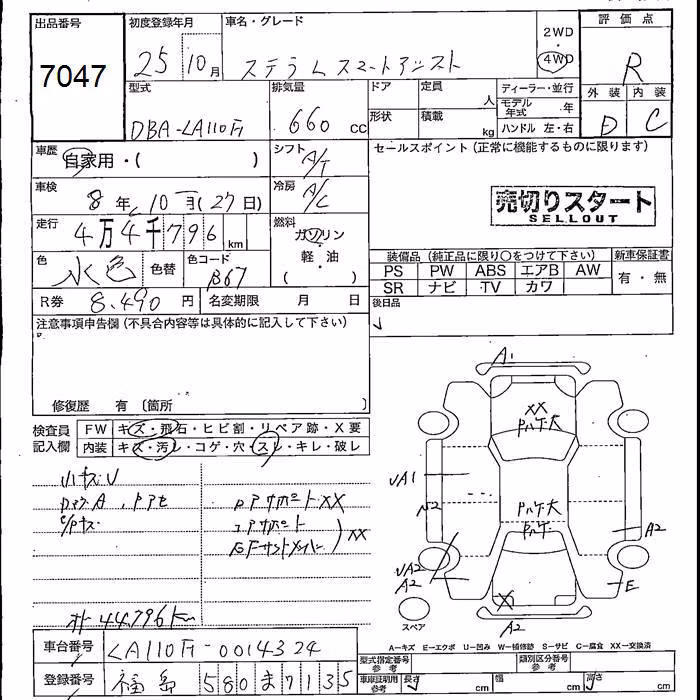 出品番号
7047
初度登録年月
25 10月
車名・グレード
ステラ L スマートアシスト
2WD
4WD
評価点
R
外装 内装
D C
型式
DBA-LA110F
排気量
660 cc
ドア
定員
人
形状
積載
kg
ディーラー・並行
モデル年式 年
ハンドル 左・右
車歴
自家用・( )
シフト
A/T
セールスポイント (正常に機能するものに限ります)
売切りスタート
SELLOUT
車検
8年 10月(27日)
冷房
A/C
走行
4万4千796km
燃料
ガソリン
軽・油
( )
色
水色
色替
色コード
B67
装備品 (純正品に限り○をつけて下さい)
PS PW ABS エアB AW
SR ナビ TV カワ
新車保証書
有・無
R券 8,490円
名変期限 月 日
後日品
注意事項申告欄 (不具合内容等は具体的に記入して下さい)
修復歴 有 〔箇所 〕
検査員
記入欄
FW キズ・飛石・ヒビ割・リペア跡・X要
内装 キズ・汚レ・コゲ・穴・スレ・キレ・破レ
小キズU
A1
XX
Pハゲ大
UA1
Pハゲ大
Pハゲ
A2
UA2
A2
E
X
A2
スペア
オド 44,796km
A-キズ E-エクボ U-凹み W-補修跡 S-サビ C-腐食 XX-交換済
車台番号 LA110F-0014324
登録番号 福島 580 ま 7135
型式指定番号
参考
類別区分番号
参考
車庫証明用
参考
長さ cm
幅 cm
高さ cm